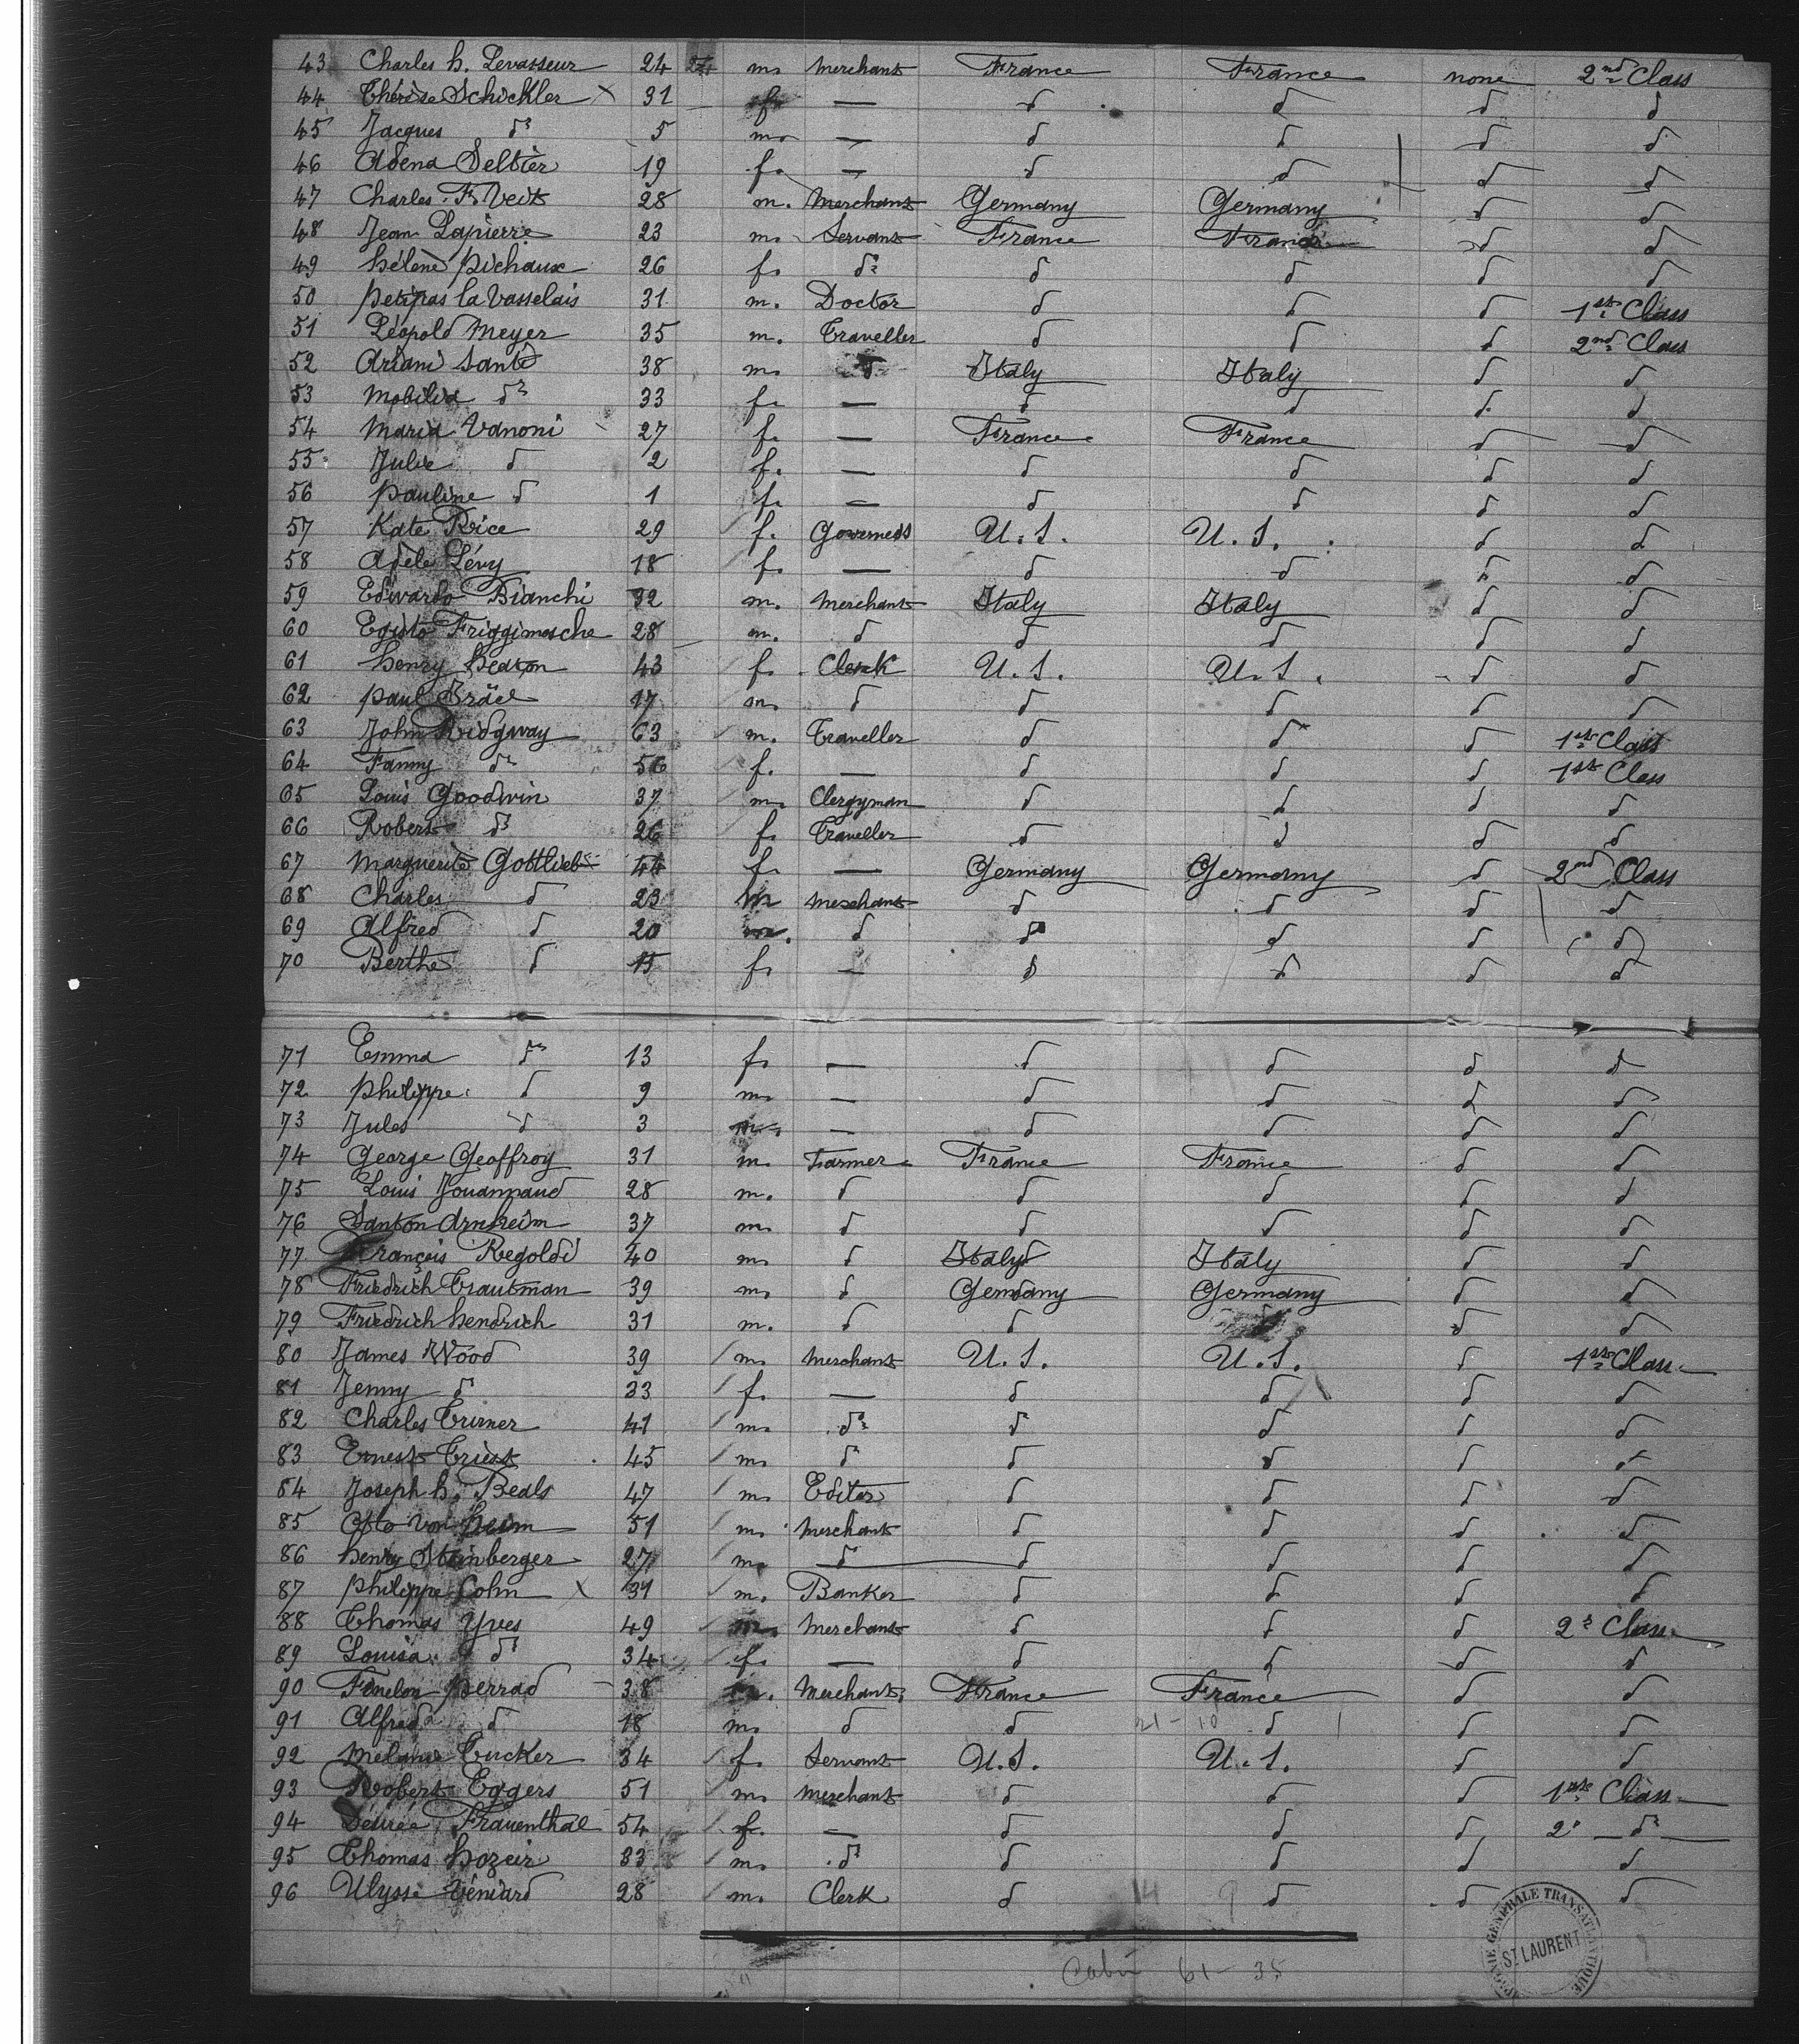 43 Charles h. Levasseur 24 m. Merchant France France none 2nd Class
44 Thérèse Schickler x 31 f. — d d d d
45 Jacques do 5 m. — d d d d
46 Adena Seltier 19 f. — d d d d
47 Charles F. Veit 28 m. Merchant Germany Germany d d
48 Jean Lapierre 23 m. Servant France France d d
49 hélène pichaux 26 f. do d d d d
50 petipas la Vasselais 31 m. Doctor d d d 1st Class
51 Léopold Meyer 35 m. Traveller d d d 2nd Class
52 Ariani Santé 38 m. d Italy Italy d d
53 Mobilia do 33 f. — d d d. d
54 Maria Vanoni 27 f. — France France d d
55 Julie d 2 f. — d d d d
56 pauline d 1 f. — d d d d
57 Kate Rice 29 f. Governess U.S. U.S. d d
58 Adèle Lévy 18 f. — d d d d
59 Edwardo Bianchi 32 m. Merchant Italy Italy d d
60 Egisto Friggimosche 28 m. d d d d d
61 henry heaton 43 f. Clerk U.S. U.S. d d
62 paul Israël 17 m. d d d d d
63 John Ridgway 63 m. Traveller d d d 1st Class
64 Fanny do 56 f. — d d d 1st Class
65 Louis Goodwin 37 m. Clergyman d d d d
66 Robert do 26 f. Traveller d d d d
67 Marguerite Gottlieb 44 f. — Germany Germany d 2nd Class
68 Charles d 23 m Merchant d d d d
69 Alfred d 20 m. d d d d d
70 Berthe d 15 f. — d d d d
71 Emma do 13 f. — d d d d
72 philippe d 9 m. — d d d d
73 Jules d 3 m. — d d d d
74 George Geoffroy 31 m. Farmer France France d d
75 Louis Jouannaud 28 m. d d d d d
76 Santon Arnheim 37 m. d d d d d
77 François Regoldi 40 m. d Italy Italy d d
78 Friedrich Trautman 39 m. d Germany Germany d d
79 Friedrich hendrich 31 m. d d d d
80 James Wood 39 m. Merchant U.S. U.S. d 1st Class
81 Jenny d 33 f. — d d d d
82 Charles Turner 41 m. do d d d d
83 Ernest Triest 45 m. d d d d d
84 Joseph h. Beals 47 m. Editor d d d d
85 Otto von heim 51 m. Merchant d d d d
86 henry Steinberger 27 m. d d d d d
87 philippe Cohn x 31 m. Banker d d d d
88 Thomas Yves 49 m. Merchant d d d 2d Class
89 Louisa do 34 f. — d d d d
90 Fénelon perrad 38 m. Merchant France France d d
91 Alfred d 18 m. d d 21-10 d d d
92 Melanie Tucker 34 f. Servant U.S. U.S. d d
93 Robert Eggers 51 m. Merchant d d d 1st Class
94 Désirée Frauenthal 54 f. — d d d 2d — do —
95 Thomas hozeir 33 m. do d d d d
96 Ulysse Véniard 28 m. Clerk d d d d
GÉNÉRALE TRANSATLANTIQUE
ST LAURENT
Cabin 61-35